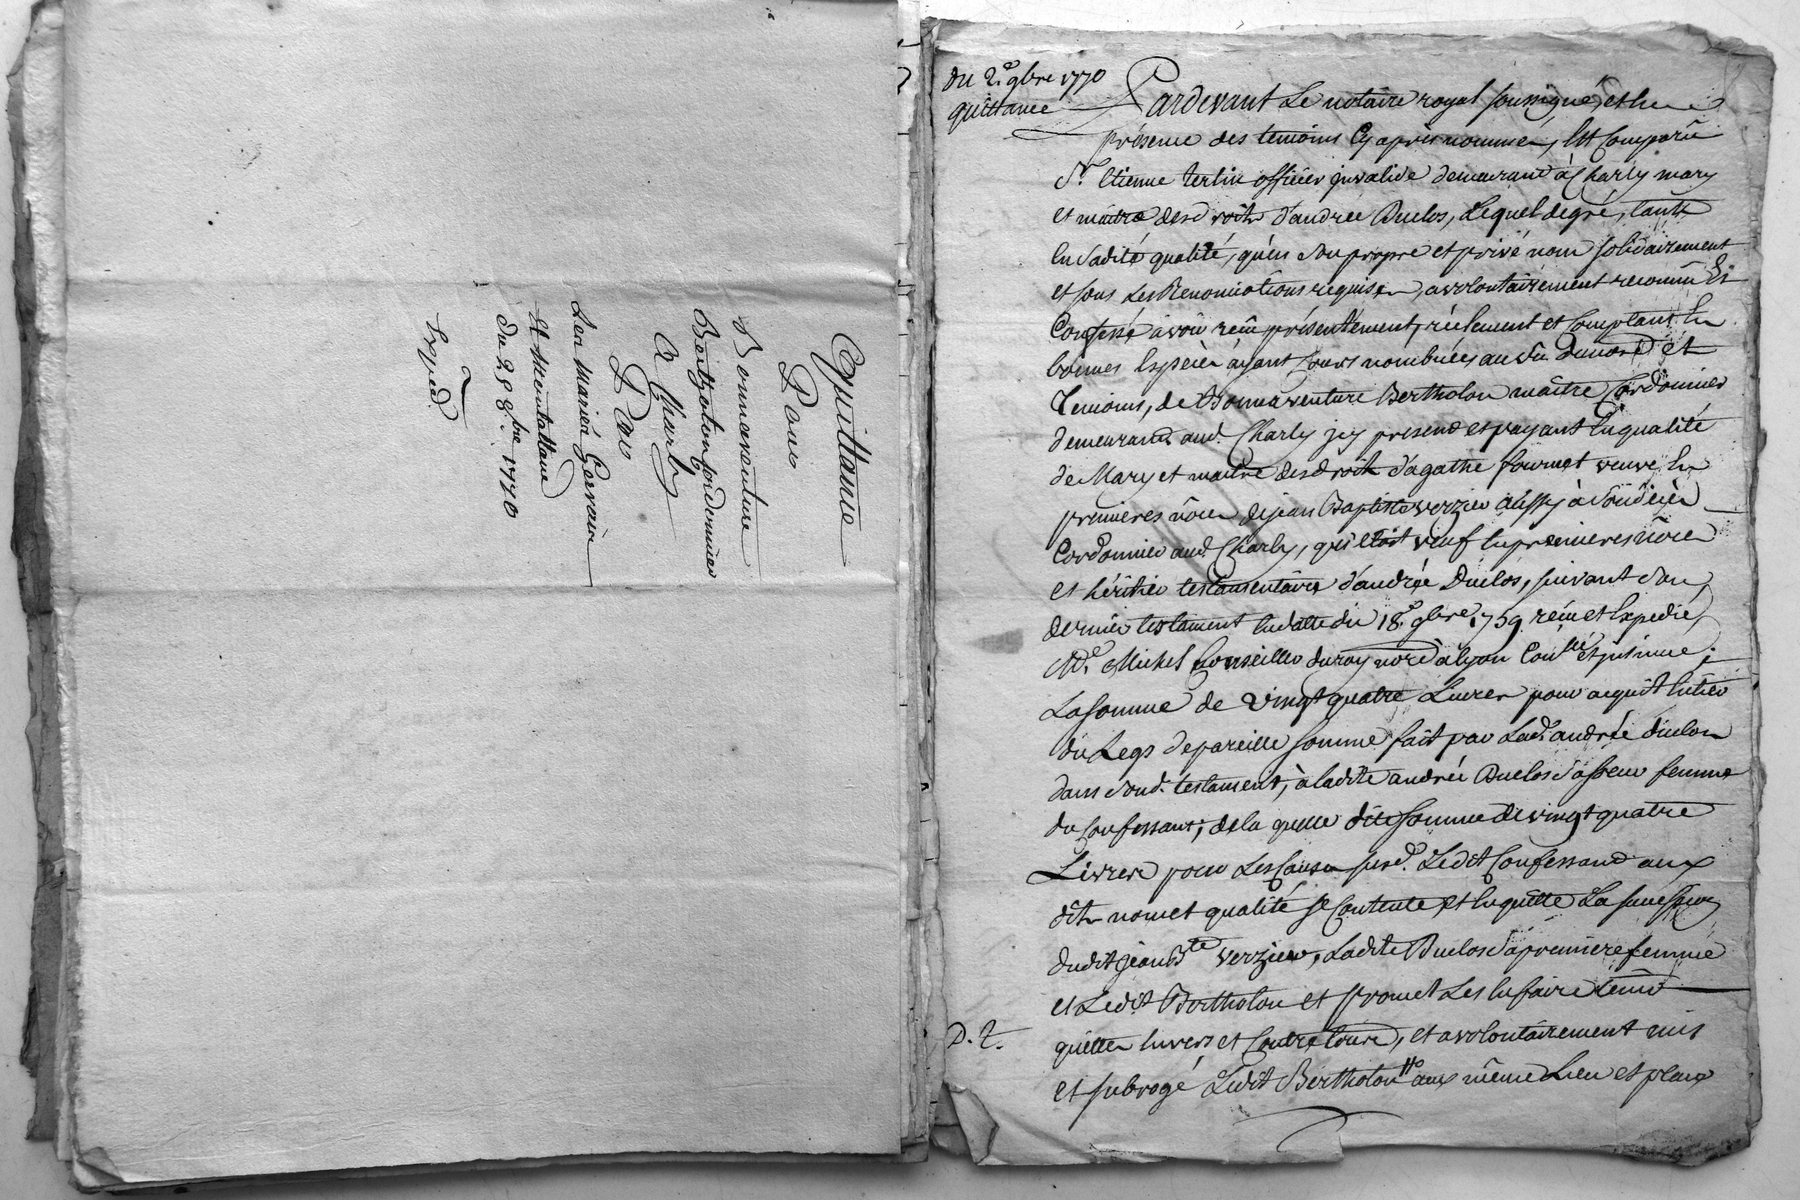 Quittance
Pour
Bonnaventure
Bertholon Cordonnier
a Charly
Par
Les Mariés Gervais
et Montaltane
du 28 8bre. 1770
Expéd.
Du 2e. 9bre 1770
quittance
Pardevant Le notaire royal soussigné, et En
présence des temoins Cy apres nommés, Est Comparu
Sr. Etienne terlin officier invalide demeurant à Charly mary
et maitre des droits d'andrée Duclos, Lequel de gré, tant
En sadite qualité, qu'en son propre et privé nom solidairement
et sous Les Renonciations requises, a volontairement reconnu Et
Confessé avoir reçu présentement, réelement et Comptant En
bonnes Espèces ayant Cours nombrées au vû du nore. Et
Temoins, de Bonnaventure Bertholon maître Cordonnier
demeurant aud. Charly icy present et payant En qualité
de Mary et maitre des droits d'agathe fournet veuve En
premieres nôces de jean Baptiste verzieu aussy à son décès
Cordonnier aud. Charly, qui Etoit veuf En premieres nôces
et héritier testamentaire d'andrée Duclos, suivant son
dernier testament En datte du 18e. 9bre. 1759 reçu et Expedié
Me. Michel Conseiller du roy nore à Lyon Conlé et insinué;
La somme de vingt quatre Livres pour acquit Entier
du Legs de pareille somme fait par Lad. andrée duclos
dans son d. testament, à Ladite andrée Duclos sa soeur femme
du Confessant; de la quelle dite somme de vingt quatre
Livres pour Les Causes susd. Ledit Confessant aux
dits noms et qualité se Contente et En quitte La succession
dudit jean Bte verzieu, Ladite Duclos sa premiere femme
et Ledit Bertholon et promet Les En faire tenir
quittes Envers et Contre tous, et a volontairement mis
D. t.
et subrogé Ledit Bertholon aux même Lieu et place